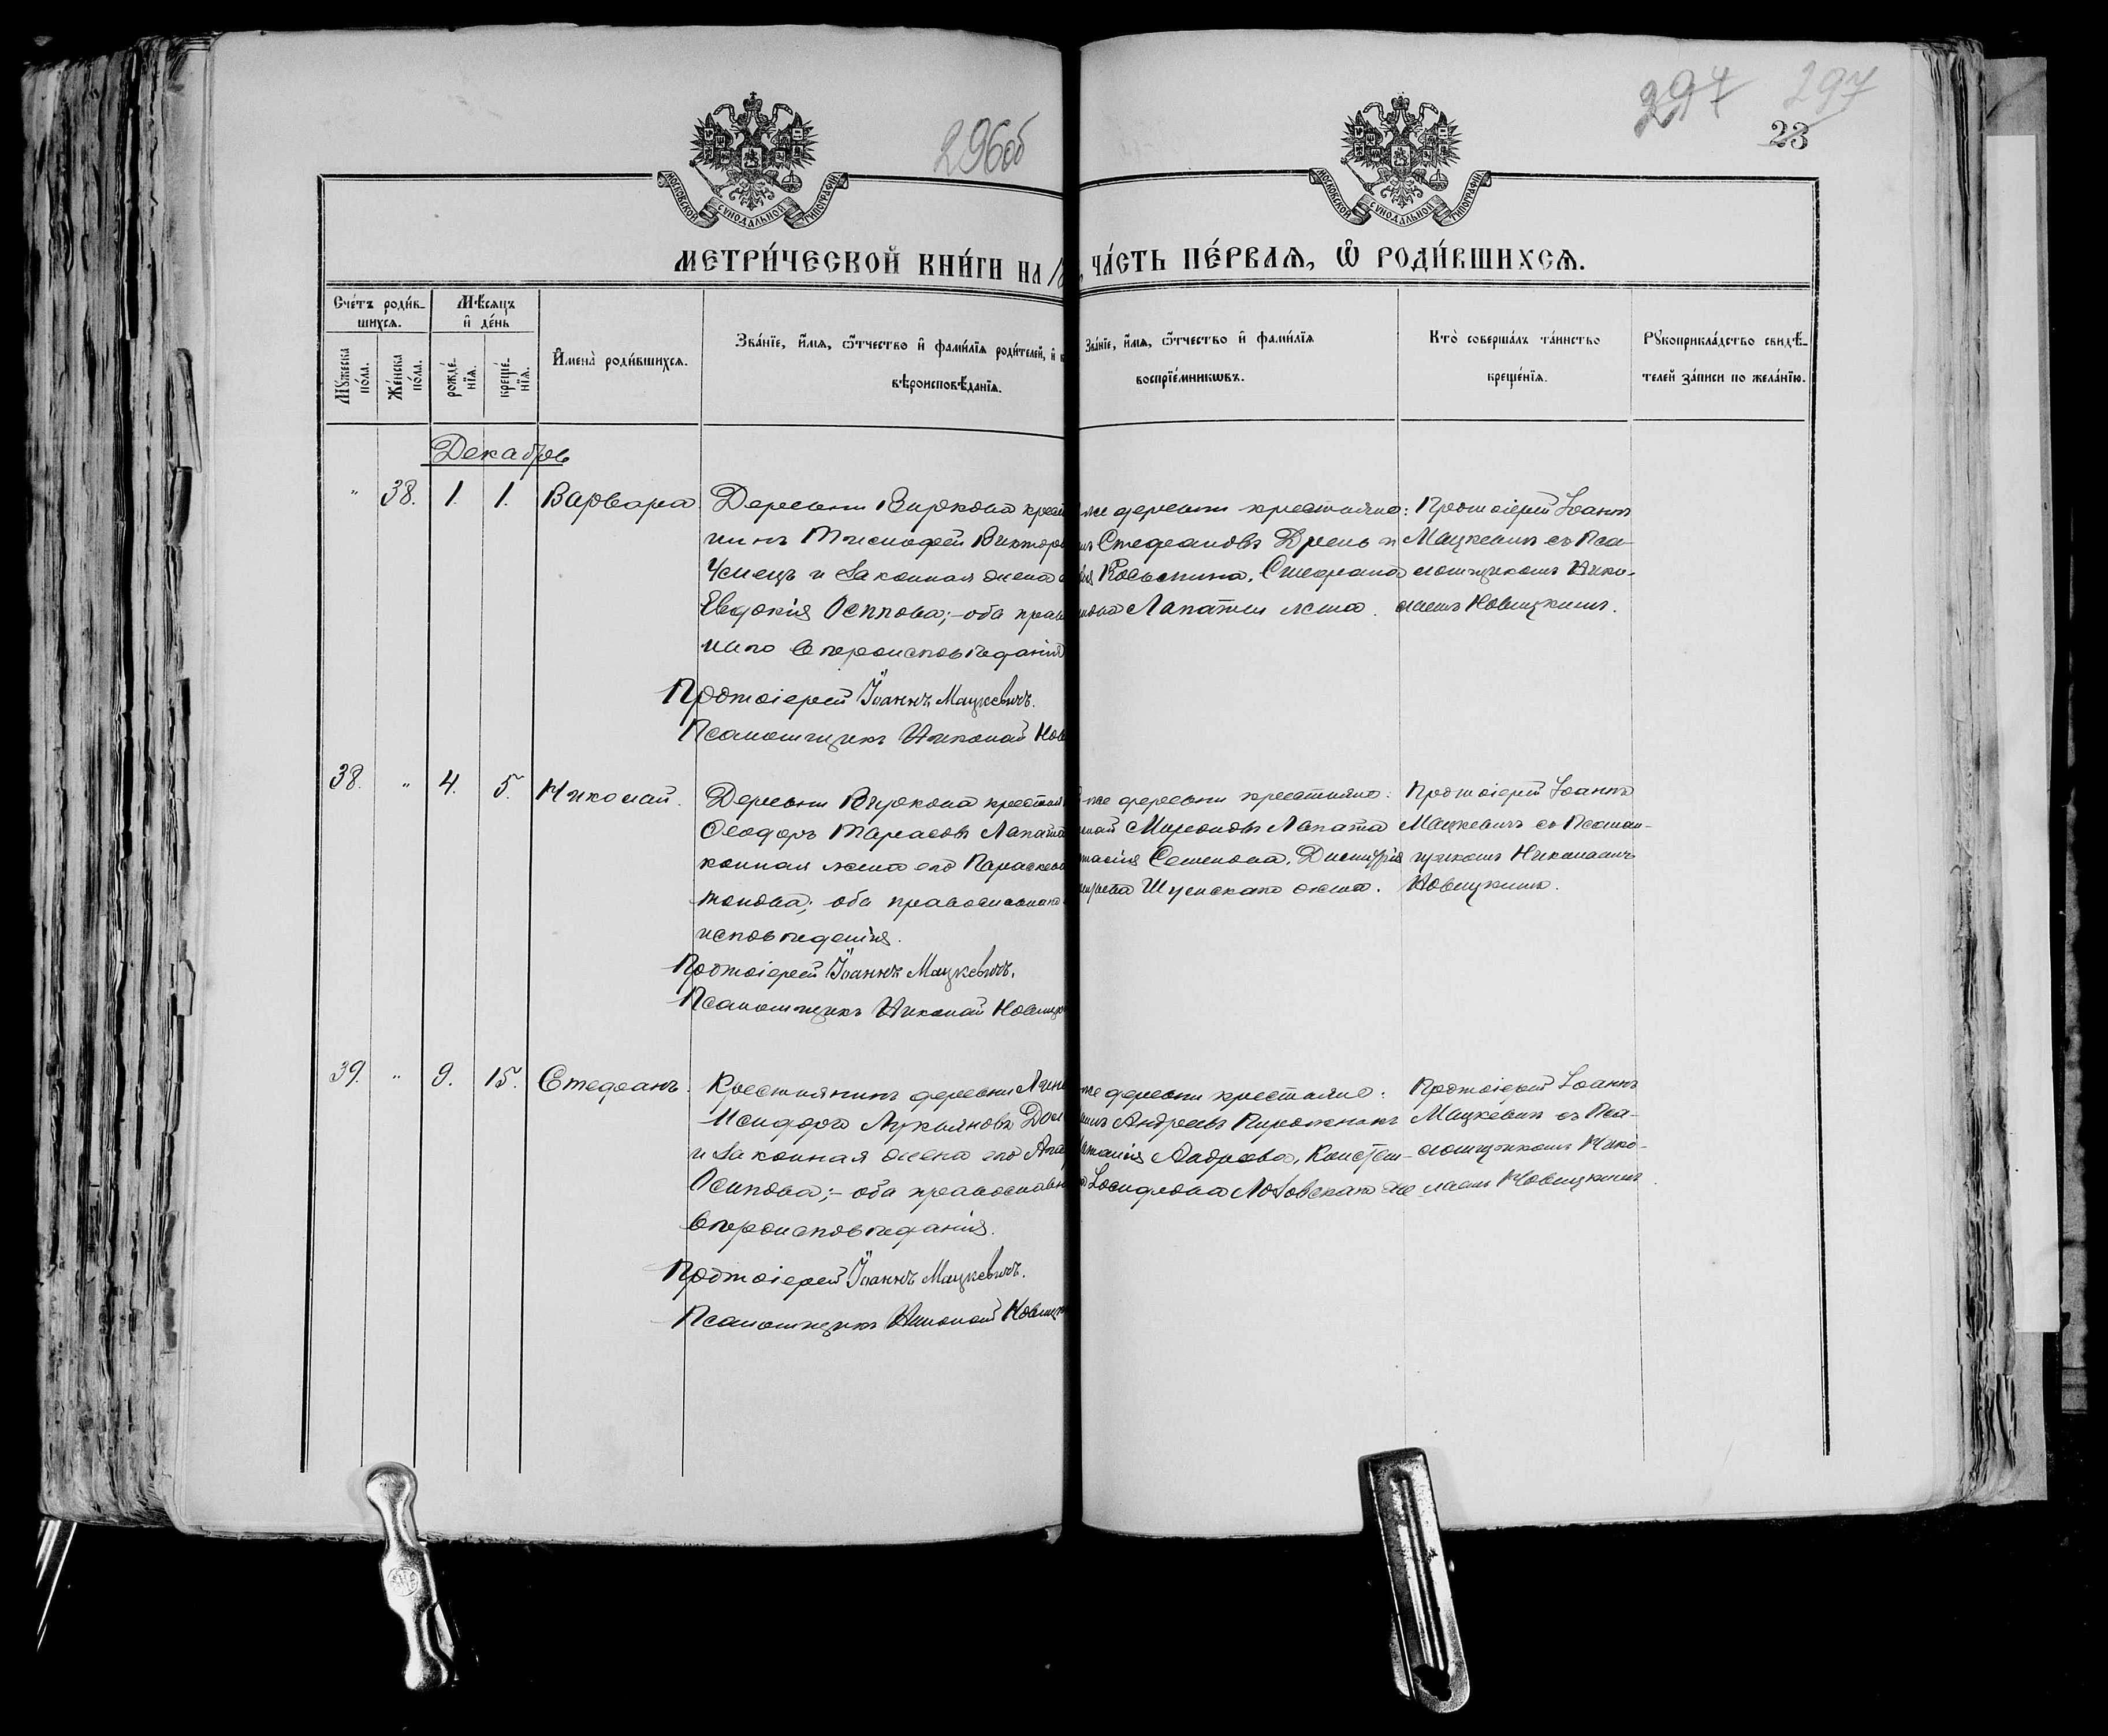 296об
297 297
23
МОСКОВСКОЙ СѴНОДАЛЬНОЙ ТИПОГРАФІИ
МОСКОВСКОЙ СѴНОДАЛЬНОЙ ТИПОГРАФІИ
МЕТРИ́ЧЕСКОЙ КНИ́ГИ НА 18
ЧА́СТЬ ПЕ́РВАѦ, Ѡ҆ РОДИ́ВШИХСѦ.
Сче́тъ роди́в-
шихсѧ.
Мѣ́сѧцъ
и҆ де́нь
Мꙋ́жеска
по́ла.
Же́нска
по́ла.
рожде́-
нїѧ.
креще́-
нїѧ.
И҆мена̀ роди́вшихсѧ.
Зва́нїе, и҆́мѧ, ѻ҆́тчество и҆ фами́лїѧ роди́телей, и҆ к
вѣроисповѣ́данїѧ.
Зва́нїе, и҆́мѧ, ѻ҆́тчество и҆ фами́лїѧ
воспрїе́мникѡвъ.
Кто̀ соверша́лъ та́инство
креще́нїѧ.
Рꙋкоприкла́дство свидѣ́-
телей за́писи по жела́нїю.
Декабрь
" 38. 1. 1. Варвара
Деревни Виркова крест
нинъ Тимофей Викторо
и законная жена
Евдокія Осипова; оба прав
наго вѣроисповѣданія
Протоіерей Іоаннъ Мацкевичъ.
Псаломщикъ Николай Нов
же деревни крестьяне:
Стефановъ Дрень и
Стефана
Лапаты жена.
Протоіерей Іоаннъ
Мацкевичъ съ Пса-
ломщикомъ Нико-
лаемъ Новицкимъ.
38. " 4. 5. Николай.
Деревни Виркова крестьян
Ѳеодоръ Тарасовъ Лапата
конная жена его Параскева
оба православнаго
исповѣданія.
Протоіерей Іоаннъ Мацкевичъ.
Псаломщикъ Николай Новицк
же деревни крестьяне:
Мироновъ Лапата
тасія Семенова, Димитрія
Шуискаго жена.
Протоіерей Іоаннъ
Мацкевичъ съ Псалом-
щикомъ Николаемъ
Новицкимъ.
39. " 9. 15. Стефанъ.
Крестьянинъ деревни
Исидоръ Лукьяновъ
и законная жена его Ага
Осипова; оба православн
вѣроисповѣданія.
Протоіерей Іоаннъ Мацкевичъ.
Псаломщикъ Николай Новицк
же деревни крестьяне:
Андреевъ Пирожникъ
Андреева, Констан-
Іосифова Лозовскаго же
Протоіерей Іоаннъ
Мацкевичъ съ Пса-
ломщикомъ Нико-
лаемъ Новицкимъ.